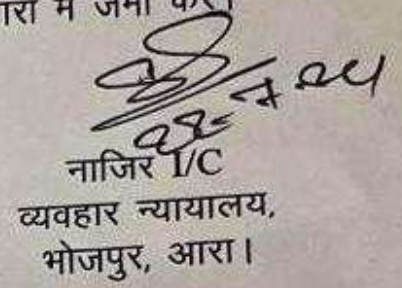 में जमा करें।
नाजिर I/C
व्यवहार न्यायालय,
भोजपुर, आरा।